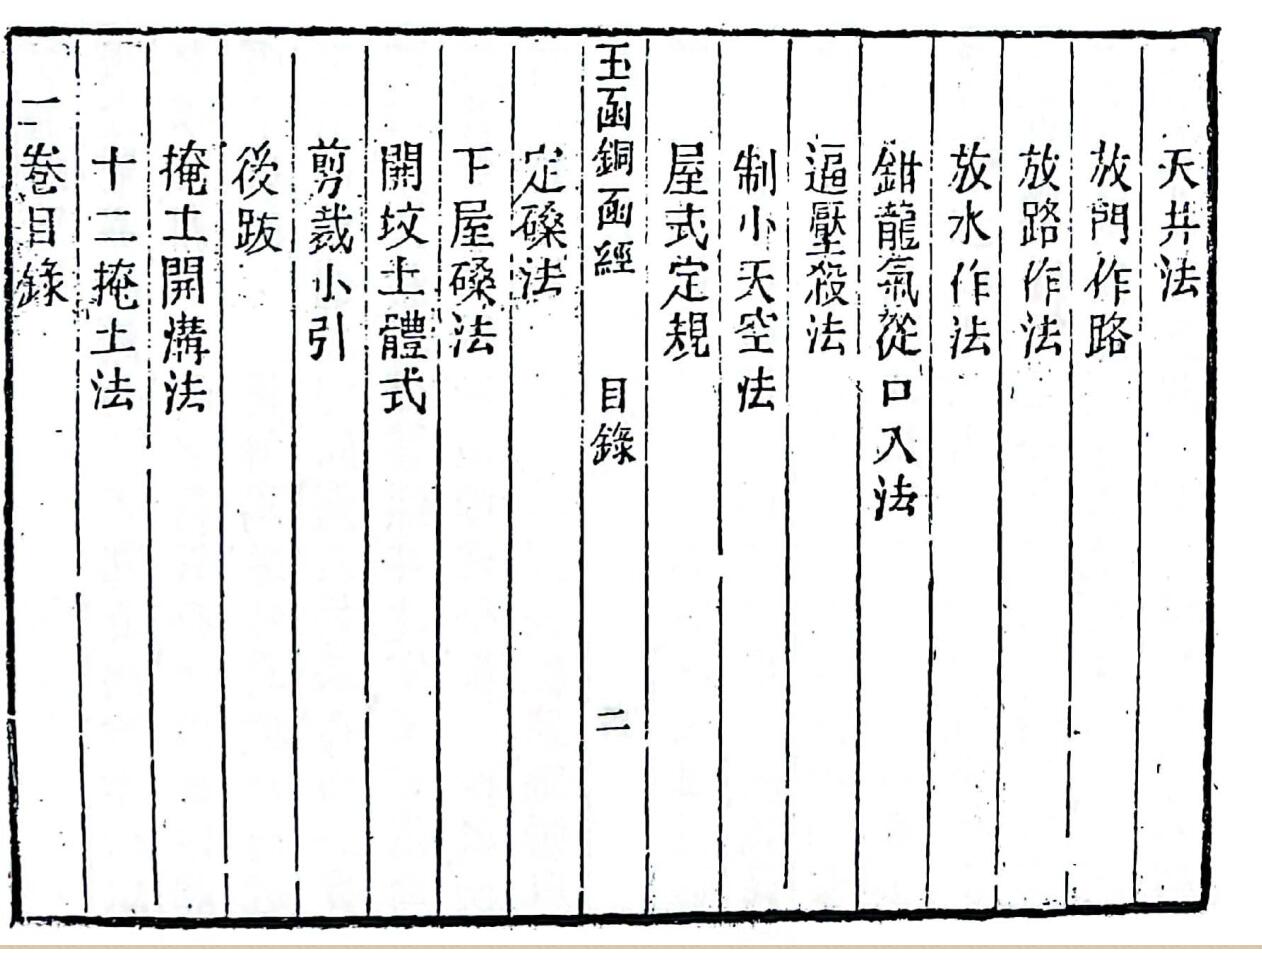 天井法
放門作路
放路作法
放水作法
鉗龍氣從口入法
逼壓殺法
制小天空法
屋式定規
玉函銅函經 目錄 二
定磉法
下屋磉法
開坟土體式
剪裁小引
後跋
掩土開溝法
十二掩土法
二卷目錄